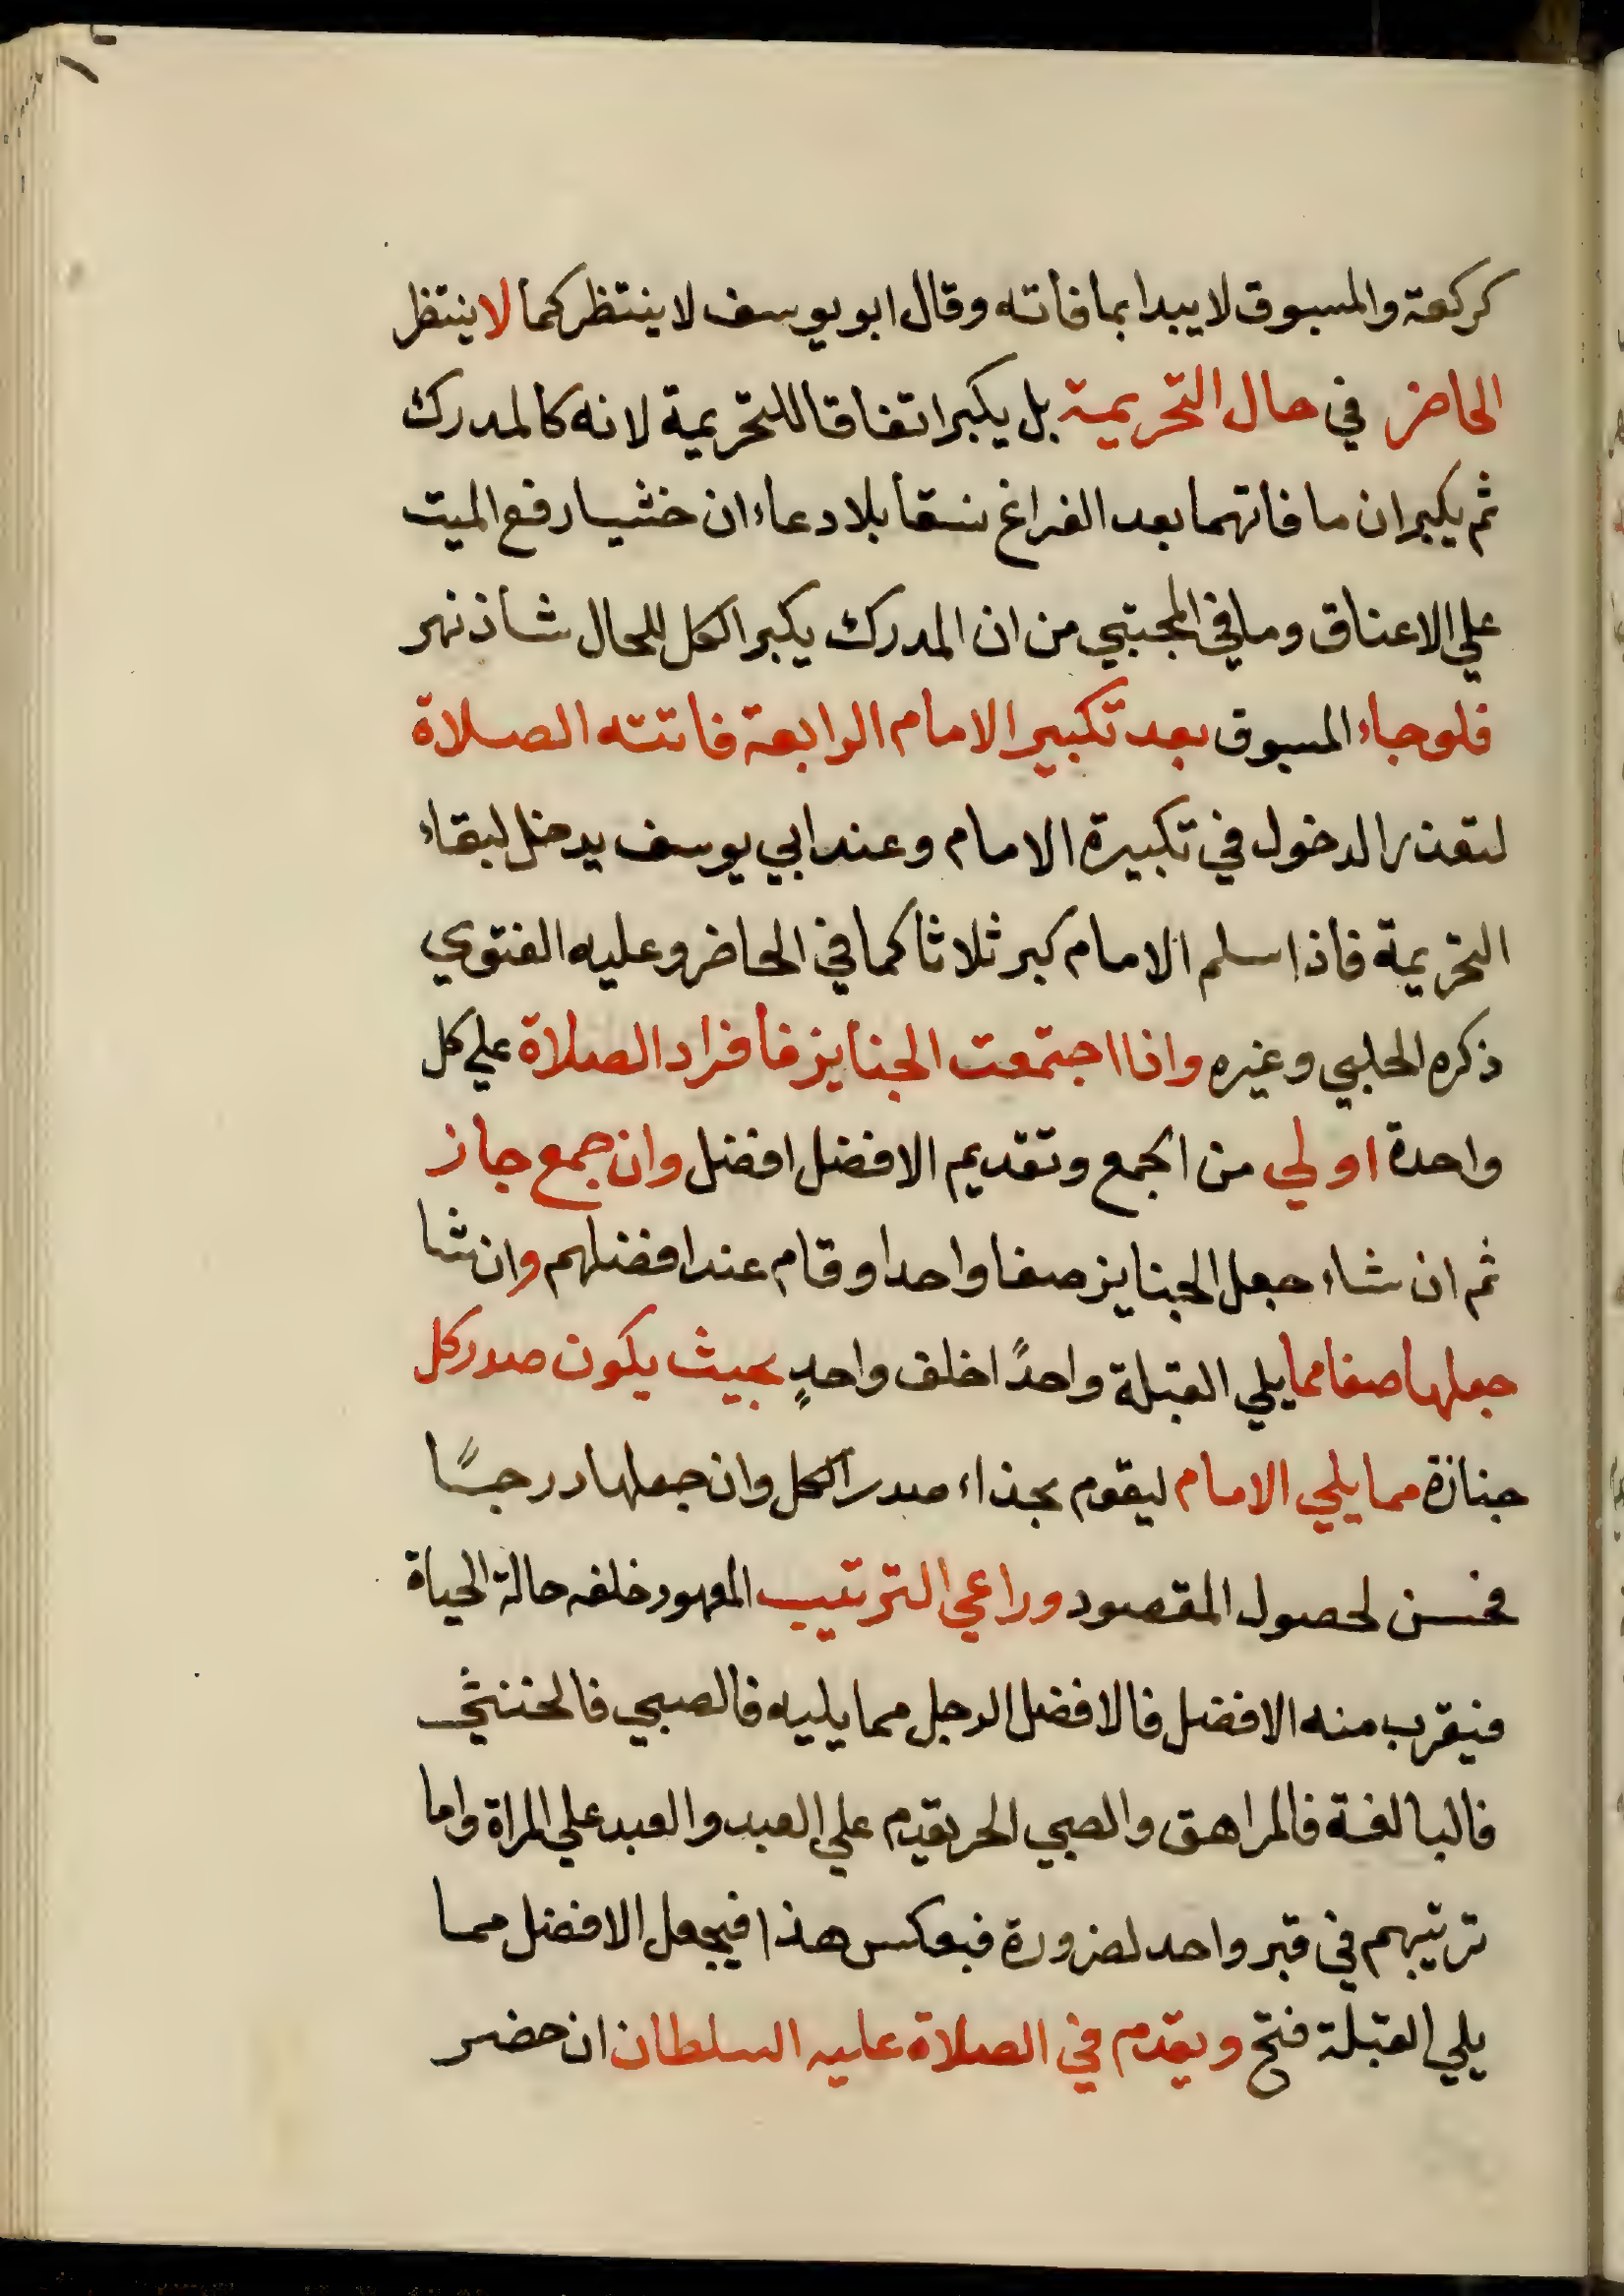 كركعة والمسبوق لا يبدا بما فاته وقال ابو يوسف لا ينتظر كما لا ينتظر
الحاضر في حال التحريمة بل يكبر اتفاقا للتحريمة لانه كالمدرك
ثم يكبران ما فاتهما بعد الفراغ نسقا بلا دعاء ان خشيا رفع الميت
علي الاعناق وما في المجتبي من ان المدرك يكبر الكل للحال شاذ نهر
فلو جاء المسبوق بعد تكبير الامام الرابعة فاتته الصلاة
لتعذر الدخول في تكبيرة الامام وعند ابي يوسف يدخل لبقاء
التحريمة فاذا سلم الامام كبر ثلاثا كما في الحاضر وعليه الفتوي
ذكره الحلبي وغيره واذا اجتمعت الجنايز فافراد الصلاة علي كل
واحدة اولي من الجمع وتقديم الافضل افضل وان جمع جاز
ثم ان شاء جعل الجنايز صفا واحدا وقام عند افضلهم وان شا
جعلها صفا مما يلي القبلة واحدًا خلف واحدٍ بحيث يكون صدر كل
جنازة مما يلي الامام ليقوم بحذاء صدر الكل وان جعلها درجًا
فحسن لحصول المقصود وراعي الترتيب المعهود خلفه حالة الحياة
فيقرب منه الافضل فالافضل الرجل مما يليه فالصبي فالخنثي
فالبالغة فالمراهق والصبي الحر يقدم علي العبد والعبد علي المراة واما
ترتيبهم في قبر واحد لضرورة فبعكس هذا فيجعل الافضل مما
يلي القبلة فتح ويقدم في الصلاة عليه السلطان ان حضر